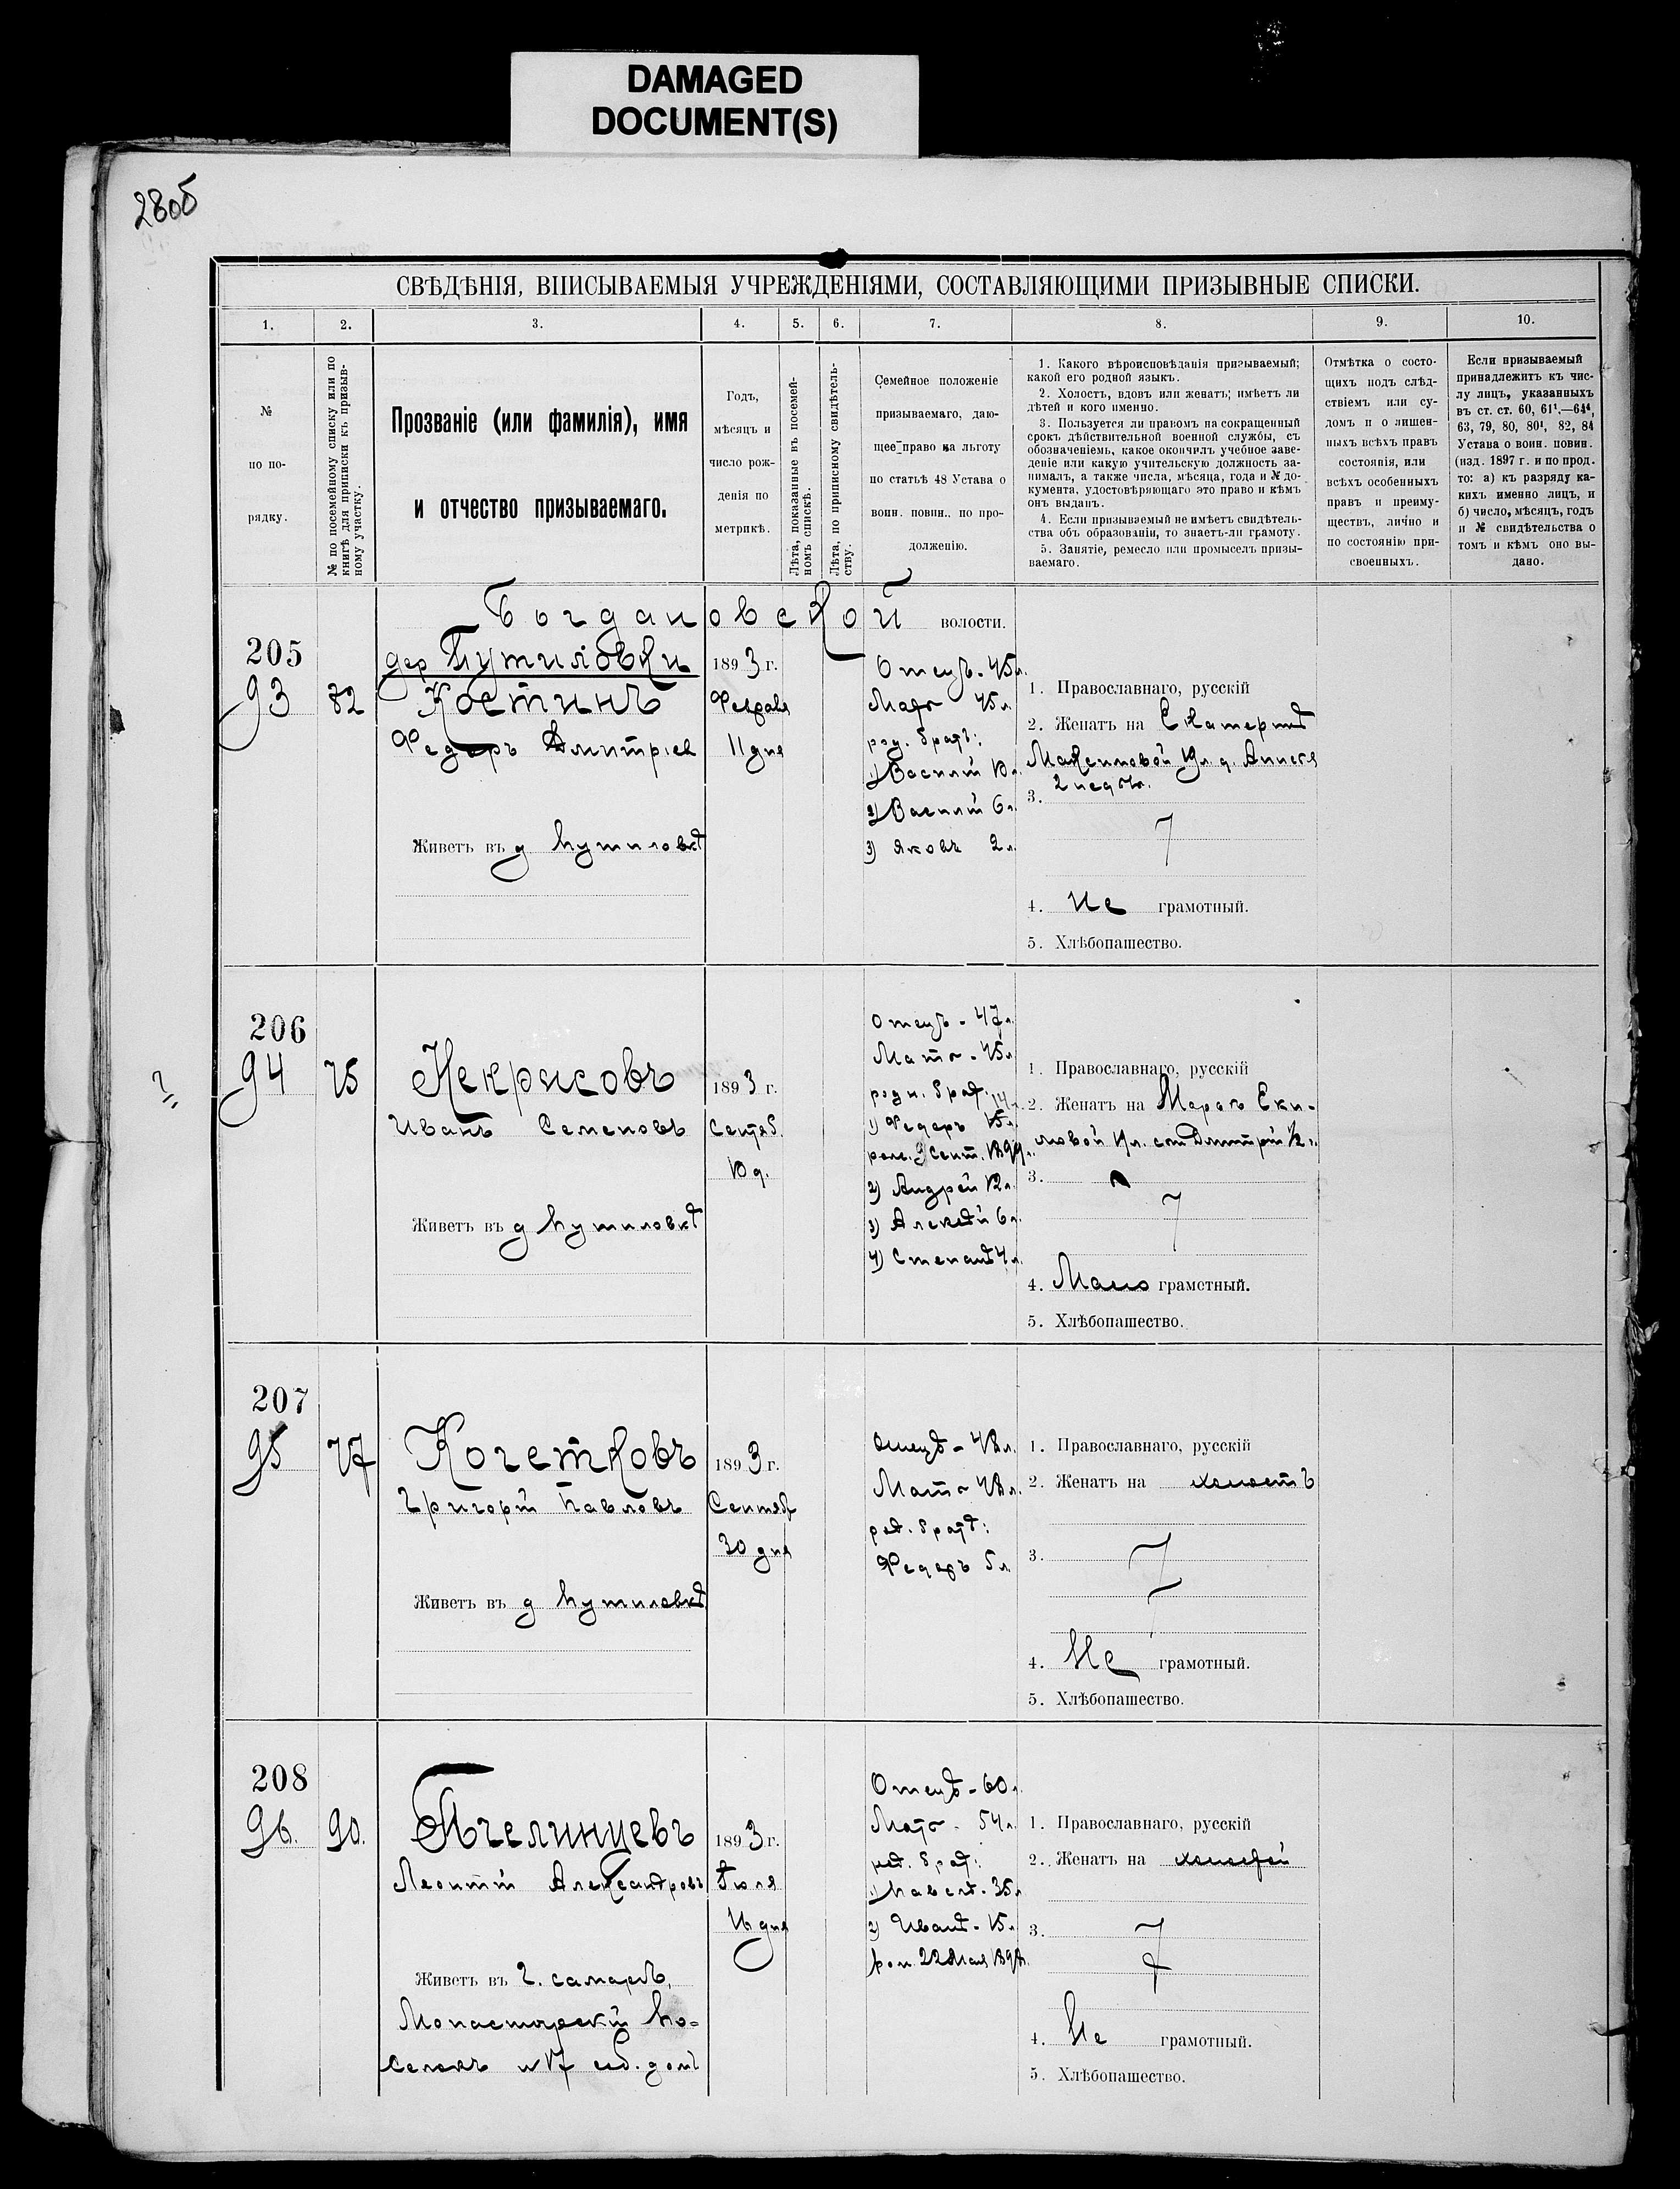 DAMAGED
DOCUMENT(S)
280б
СВѢДѢНІЯ, ВПИСЫВАЕМЫЯ УЧРЕЖДЕНІЯМИ, СОСТАВЛЯЮЩИМИ ПРИЗЫВНЫЕ СПИСКИ.
1. 2. 3. 4. 5. 6. 7. 8. 9. 10.
№
по по-
рядку.
№ по посемейному списку или по
книгѣ для приписки къ призыв-
ному участку.
Прозваніе (или фамилія), имя
и отчество призываемаго.
Годъ,
мѣсяцъ и
число рож-
денія по
метрикѣ.
Лѣта, показанные въ посемей-
номъ спискѣ.
Лѣта, по приписному свидѣтель-
ству.
Семейное положеніе
призываемаго, даю-
щее право на льготу
по статьѣ 48 Устава о
воин. повин.. по про-
долженію.
1. Какого вѣроисповѣданія призываемый;
какой его родной языкъ.
2. Холостъ, вдовъ или женатъ; имѣетъ ли
дѣтей и кого именно.
3. Пользуется ли правомъ на сокращенный
срокъ дѣйствительной военной службы, съ
обозначеніемъ, какое окончилъ учебное заве-
деніе или какую учительскую должность за-
нималъ, а также числа, мѣсяца, года и № до-
кумента, удостовѣряющаго это право и кѣмъ
онъ выданъ.
4. Если призываемый не имѣетъ свидѣтель-
ства объ образованіи, то знаетъ-ли грамоту.
5. Занятіе, ремесло или промыселъ призы-
ваемаго.
Отмѣтка о состо-
щихъ подъ слѣд-
ствіемъ или су-
домъ и о лишен-
ныхъ всѣхъ правъ
состоянія, или
всѣхъ особенныхъ
правъ и преиму-
ществъ, лично и
по состоянію при-
своенныхъ.
Если призываемый
принадлежитъ къ чис-
лу лицъ, указанныхъ
въ ст. ст. 60, 61¹,—64⁴,
63, 79, 80, 80¹, 82, 84
Устава о воин. повин.
(изд. 1897 г. и по прод.
то: а) къ разряду ка-
кихъ именно лицъ, и
б) число, мѣсяцъ, годъ
и № свидѣтельства о
томъ и кѣмъ оно вы-
дано.
Богдановской волости.
205
93 82
дер Путиловки
Костинъ
Федоръ Дмитріев
Живетъ въ д Путиловкѣ
1893 г.
Февраля
11 дня
Отецъ. 45 л.
Мать 45 л.
род. братъ:
1) Василій 10 л.
2) Василій 6 л.
3) Яковъ 2 л.
1. Православнаго, русскій
2. Женатъ на Екатеринѣ
Максимовой 19 л. д. Анисья
2 недѣл.
3.
4. Не грамотный.
5. Хлѣбопашество.
206
94 75
Некрасовъ
Иванъ Семеновъ
Живетъ въ д Путиловкѣ
1893 г.
Сентяб.
10 д.
Отецъ - 47 л.
Мать - 45 л.
родн. брат. 14 л.
1) Федоръ 15 л.
рож. 9 Сент. 1899 г.
2) Андрей 12 л.
3) Алексѣй 6 л.
4) Степанъ 4 л.
1. Православнаго, русскій
2. Женатъ на
19 л. сын Дмитрій 1/2 г.
3.
4. Мало грамотный.
5. Хлѣбопашество.
207
95 77
Кочетковъ
Григорій Павловъ
Живетъ въ д Путиловкѣ
1893 г.
Сентяб
30 дня
Отецъ - 48 л.
Мать 48 л.
род. братъ:
Федоръ 5 л.
1. Православнаго, русскій
2. Женатъ на холостъ
3.
4. Не грамотный.
5. Хлѣбопашество.
208
96. 90.
Пчелинцевъ
Леонтій Александровъ
Живетъ въ г. Самарѣ,
Монастырскій По-
селокъ № 17 соб. домъ
1893 г.
Іюля
16 дня
Отецъ - 60 л.
Мать - 54 л.
род. брат:
1) Павелъ - 35 л
2) Иванъ - 15 л.
рож. 22 Мая 1898
1. Православнаго, русскій
2. Женатъ на холостой
3.
4. Не грамотный.
5. Хлѣбопашество.